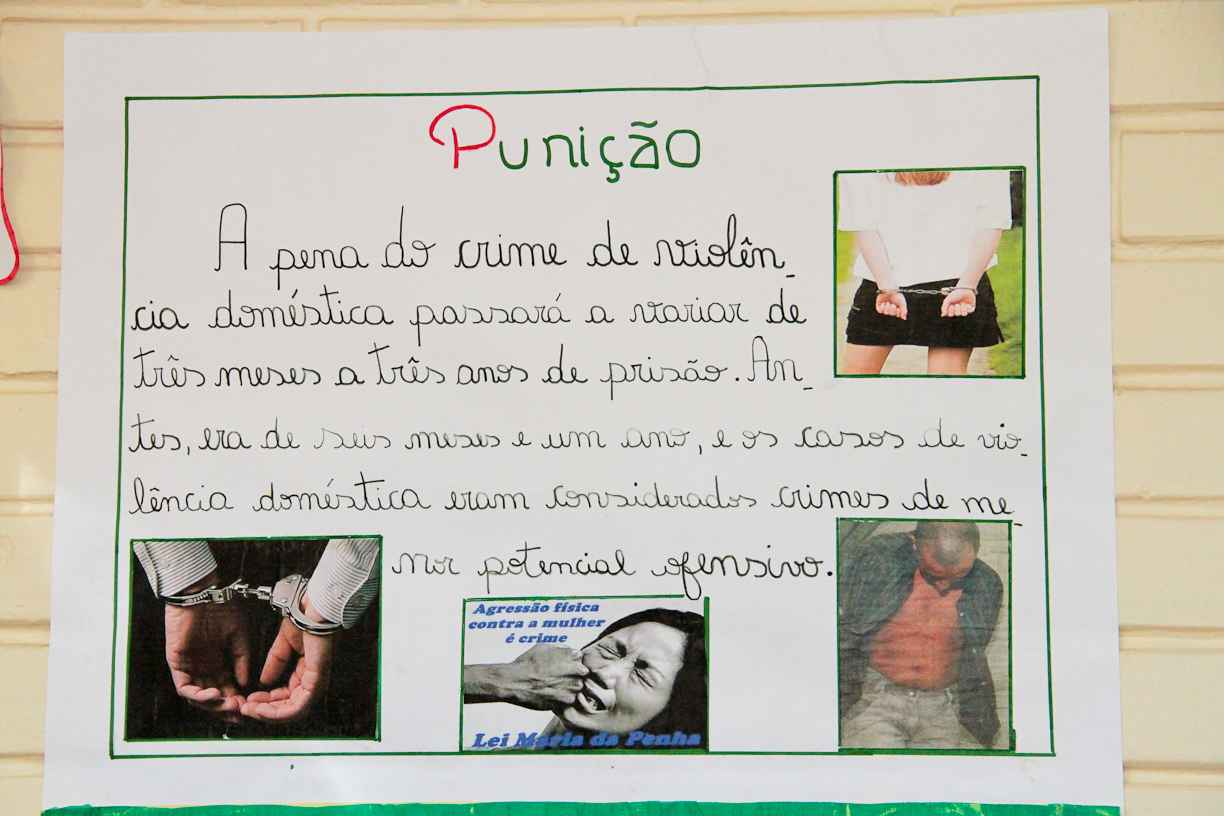 Punição
A pena do crime de violên_
cia doméstica passará a variar de
três meses a três anos de prisão. An_
tes, era de seis meses e um ano, e os casos de vio_
lência doméstica eram considerados crimes de me_
nor potencial ofensivo.
Agressão física
contra a mulher
é crime
Lei Maria da Penha